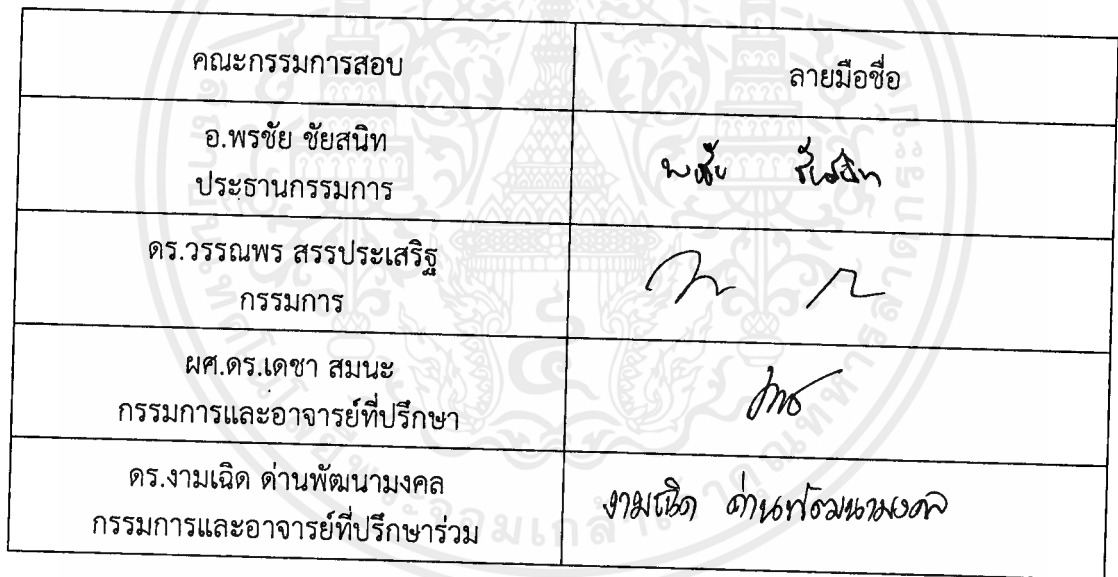 คณะกรรมการสอบ ลายมือชื่อ
อ.พรชัย ชัยสนิท
ประธานกรรมการ
พรชัย ชัยสนิท
ดร.วรรณพร สรรประเสริฐ
กรรมการ
ผศ.ดร.เดชา สมนะ
กรรมการและอาจารย์ที่ปรึกษา
ดร.งามเฉิด ด่านพัฒนามงคล
กรรมการและอาจารย์ที่ปรึกษาร่วม
งามเฉิด ด่านพัฒนามงคล